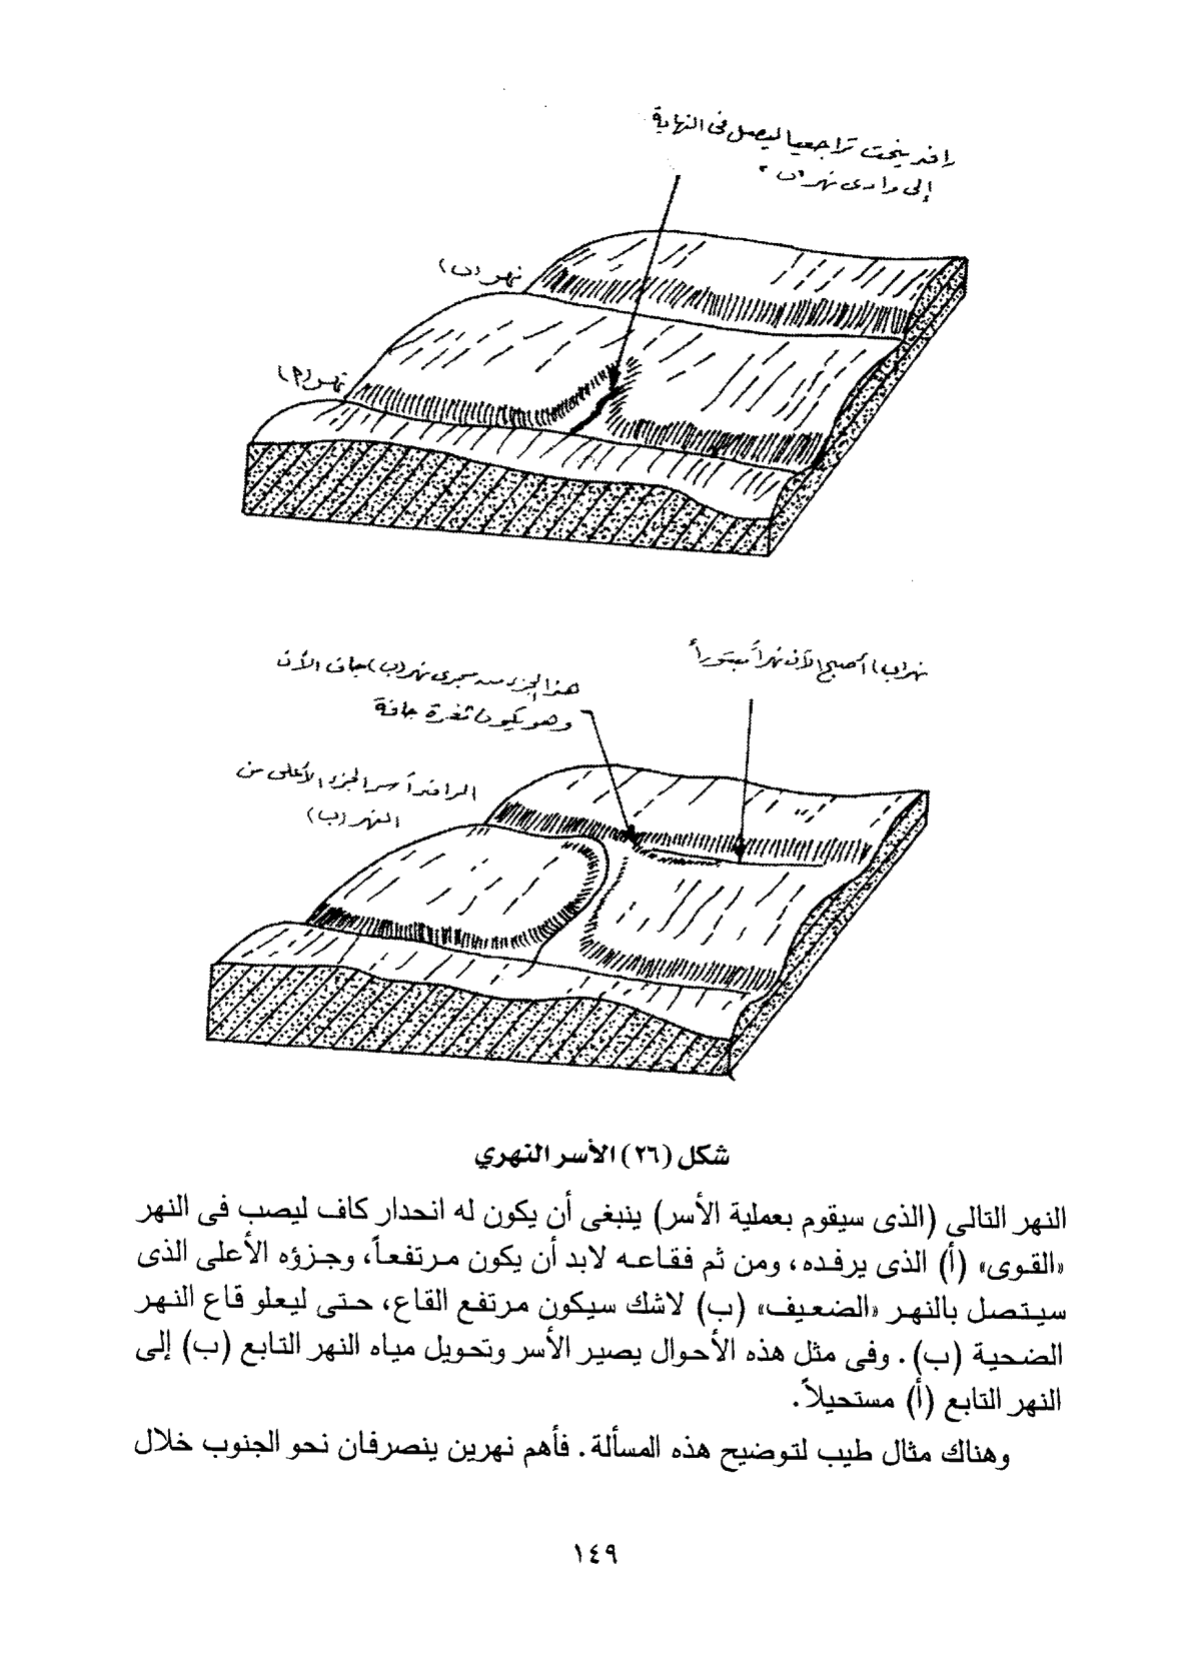 رافد ينحت تراجعيا ليصل فى النهاية
إلى وادى نهر "ب"
نهر (ب)
نهر (أ)
نهر (ب) أصبح الآن نهراً مبتوراً
هذا الجزء من مجرى نهر (ب) جاف الآن
وهو يكون ثغرة جافة
الرافد أسر الجزء الأعلى من
النهر (ب)
شكل (٢٦) الأسر النهري
النهر التالى (الذى سيقوم بعملية الأسر) ينبغى أن يكون له انحدار كاف ليصب فى النهر
«القوى» (أ) الذى يرفده، ومن ثم فقاعه لابد أن يكون مرتفعاً، وجزؤه الأعلى الذى
سيتصل بالنهر «الضعيف» (ب) لاشك سيكون مرتفع القاع، حتى ليعلو قاع النهر
الضحية (ب). وفى مثل هذه الأحوال يصير الأسر وتحويل مياه النهر التابع (ب) إلى
النهر التابع (أ) مستحيلاً.
وهناك مثال طيب لتوضيح هذه المسألة. فأهم نهرين ينصرفان نحو الجنوب خلال
١٤٩